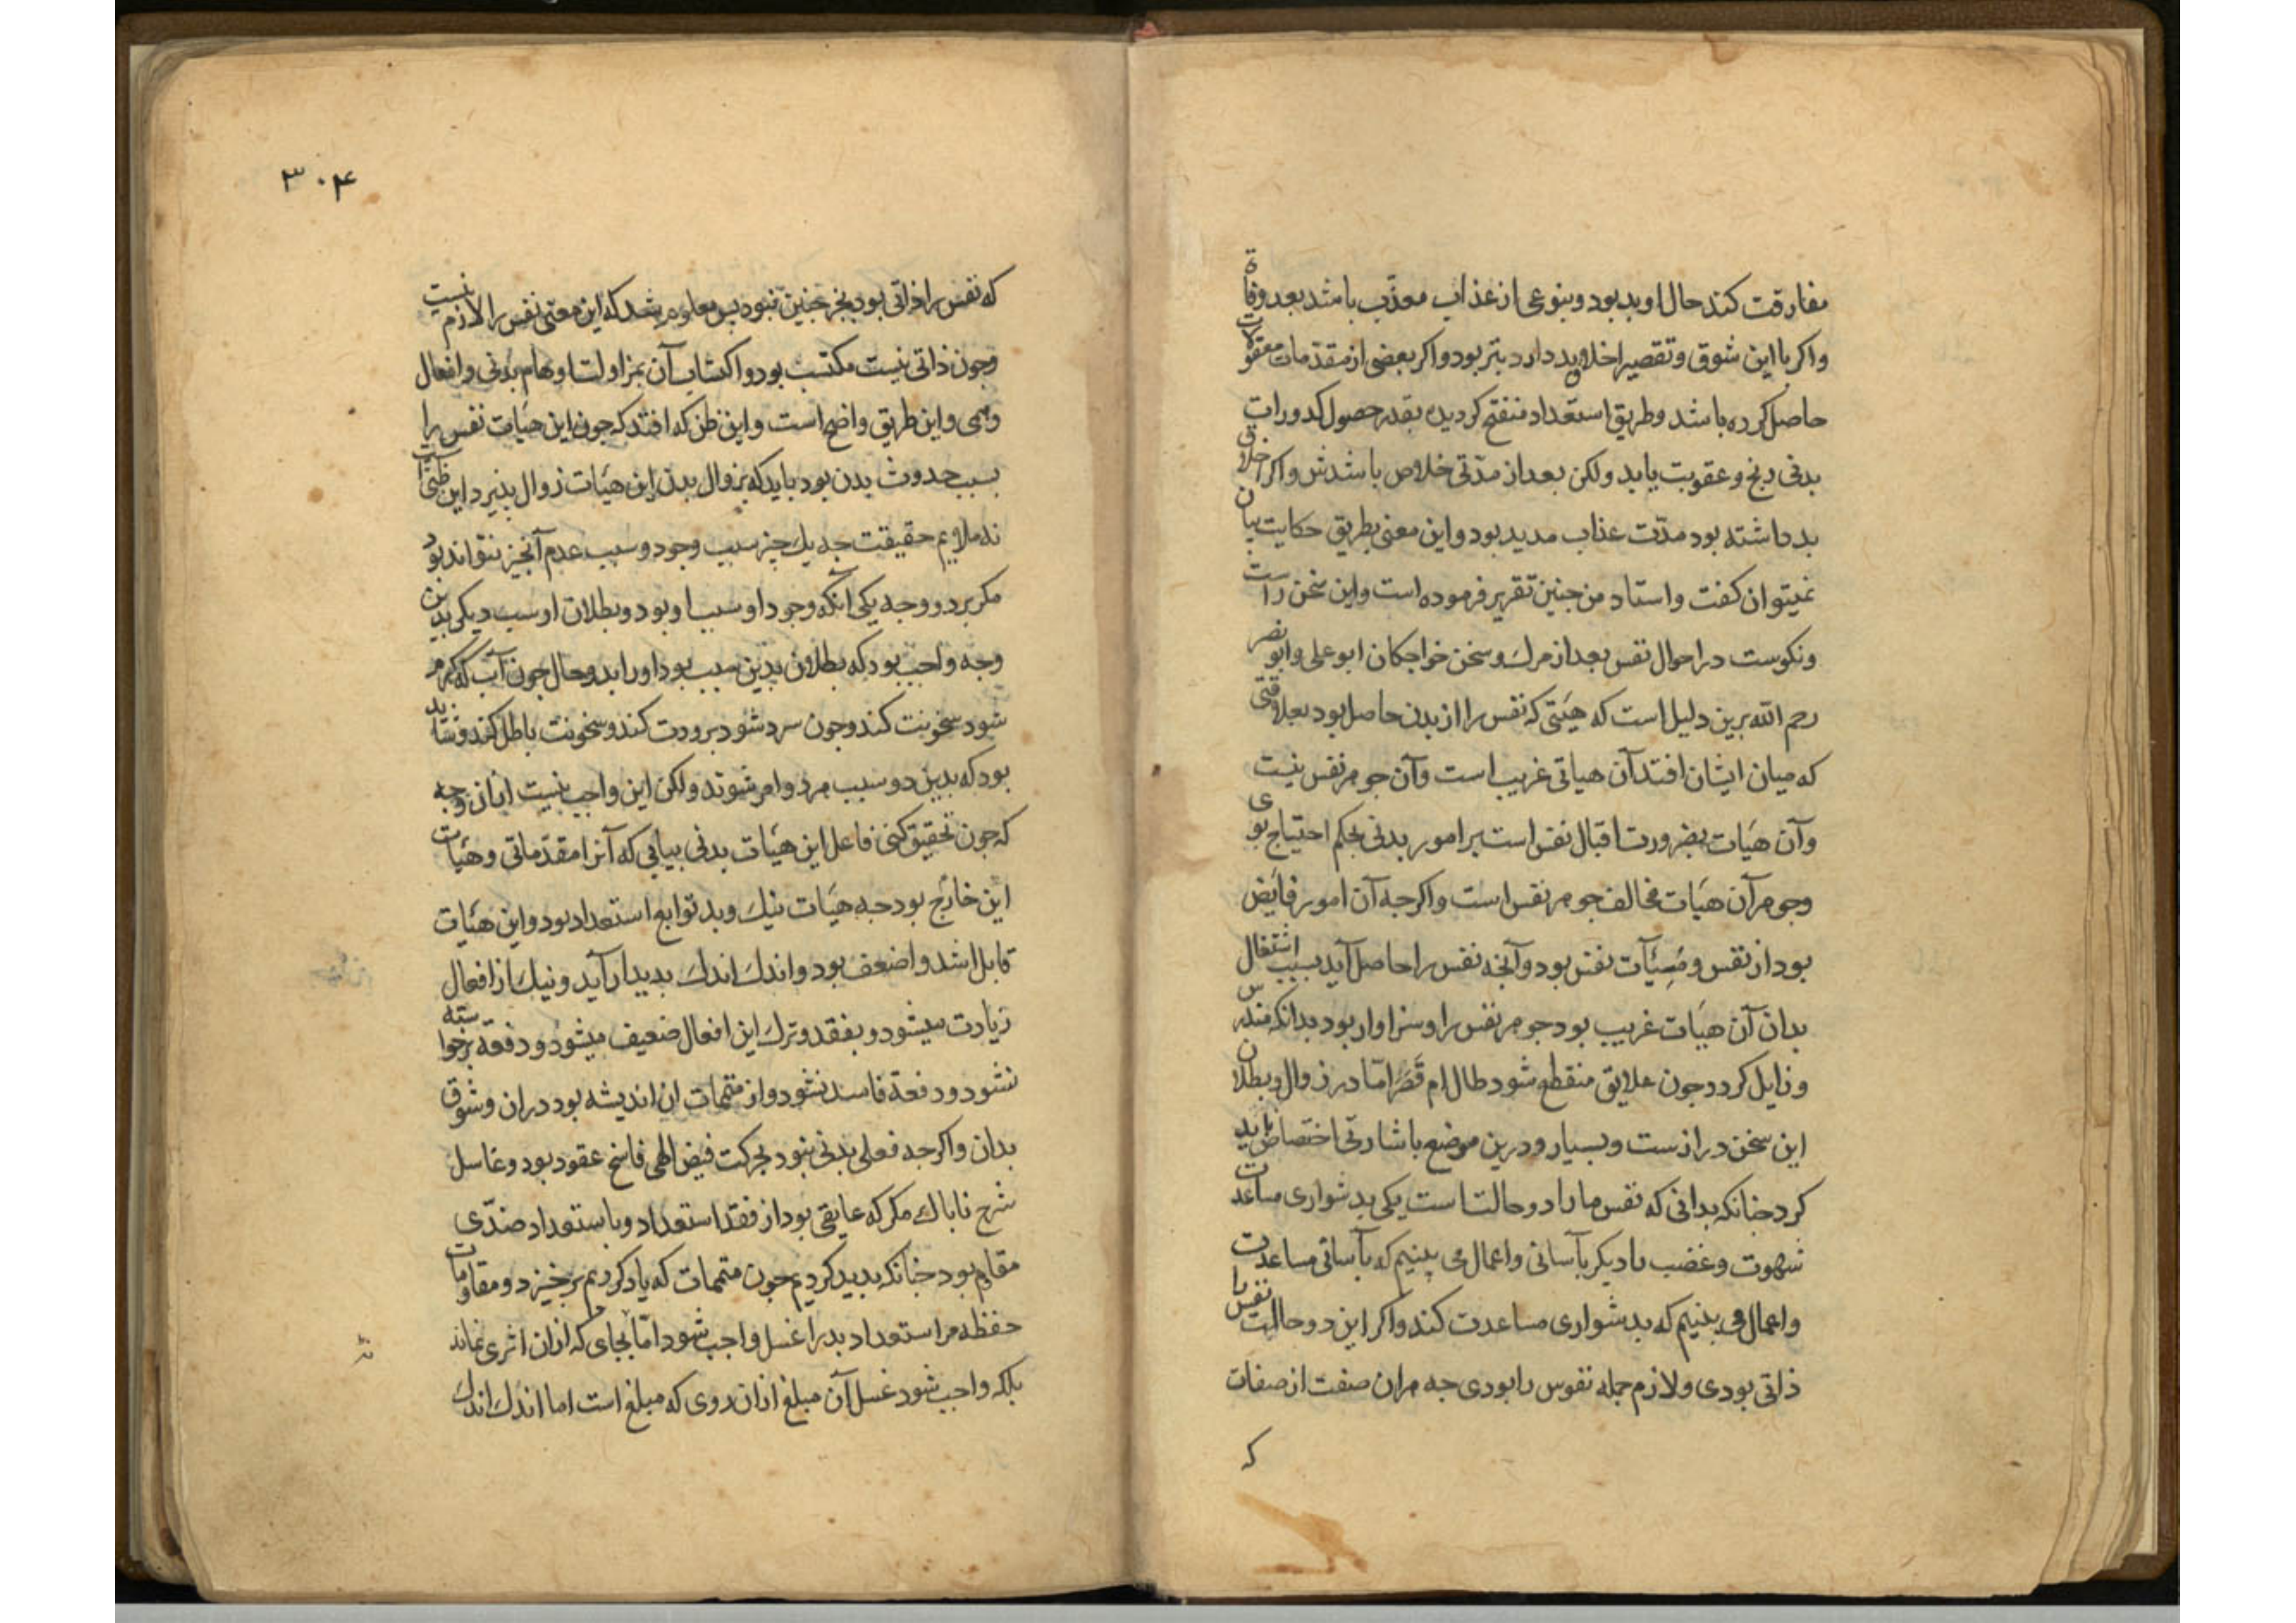 مفارقت کند حال او بد بود و بنوعی از عذاب معذّب باشد بعد وفاة
واکر با این شوق و تقصیر اخلاق بد دارد بتر بود واکر بعضی از مقدّمات معقولات
حاصل کرده باشد وطریق استعداد منفتح کردیده بقدر حصول کدورات
بدنی رنج و عقوبت یابد ولکن بعد از مدّتی خلاص باشدش واکر اخلاق
بد داشته بود مدّت عذاب مدید بود واین معنی بطریق حکایت بیان
نمیتوان کفت واستاد من جنین تقریر فرموده است واین سخن راست
ونکوست در احوال نفس بعد از مرك وسخن خواجکان ابو علی وابو نصر
رحم الله برین دلیل است که هیئتی که نفس را از بدن حاصل بود بعلاقتی
که میان ایشان افتد آن هیاتی غریب است وآن جوهر نفس نیست
وآن هیآت بضرورت اقبال نفس است بر امور بدنی بحکم احتیاج بوی
وجوهر آن هیآت مخالف جوهر نفس است واکرجه آن امور فایض
بود از نفس و آت نفس بود وآنجه نفس را حاصل آید بسبب اشتغال
بدان آن هیآت غریب بود جوهر نفس را وسزاوار بود بدانکه مندرس
وزایل کردد جون علایق منقطع شود طال ام قَصَر امّا در زوال وبطلان
این سخن درازست وبسیار ودرین موضع باشارتی اختصاص باید
کرد جنانکه بدانی که نفس ما را دو حالتست یکی بدشواری مساعدت
شهوت وغضب یا دیکر بآسانی واعمال می بینیم که بآسانی مساعدت
واعمال می بینیم که بدشواری مساعدت کند واکر این دو حالت نفس را
ذاتی بودی ولازم جمله نفوس را بودی جه هران صفت از صفات
که
۳۰۴
که نفس را ذاتی بود بجز جنین نبود بس معلوم شد که این معنی نفس را لازم نیست
وجون ذاتی نیست مکتسب بود واکتساب آن بمزاولت اوهام بدنی وافعال
وهمی واین طریق واضح است واین ظن که افتد که جون این هیآت نفس را
بسبب حدوث بدن بود باید که بزوال بدن این هیآت زوال بذیرد این ظنّی است
نه ملایم حقیقت جه یك جیز سبب وجود وسبب عدم آنجیز نتواند بود
مکر بر دو وجه یکی آنکه وجود او سبب او بود وبطلان او سبب دیکی بدین
وجه واجب بود که بطلان بدین سبب بود او را بدو حال جون آب که کرم
شود سخونت کند وجون سرد شود برودت کند وسخونت باطل کند وشاید
بود که بدین دو سبب هر دو امر شوند ولکن این واجب نیست ازان وجه
که جون تحقیق کنی فاعل این هیآت بدنی بیابی که آنرا مقدّماتی وهیآت
این خارج بود جه هیآت نیك وبد توابع استعداد بود واین هیآت
قابل اشد واضعف بود واندك اندك بدیدار آید ونیك از افعال
زیادت میشود وبفقد وترك این افعال ضعیف میشود ودفعة برخواسته
نشود ودفعة فاسد نشود واز متممات ان اندیشه بود دران وشوق
بدان واکرجه فعلی بدنی نبود بحرکت فیض الهی فاسخ عقود بود وغاسل
شرح ناباك مکر که عایقی بود از فقد استعداد وبا ستعداد ضدّی
مقاوم بود جنانکه بدید کردیم جون متممات که یاد کردیم برخیزد ومقاومات
حفظه مر استعداد بد را غسل واجب شود امّا بجای که ازان اثری نماند
بلکه واجب شود غسل آن مبلغ ازان روی که مبلغ است اما اندك اندك